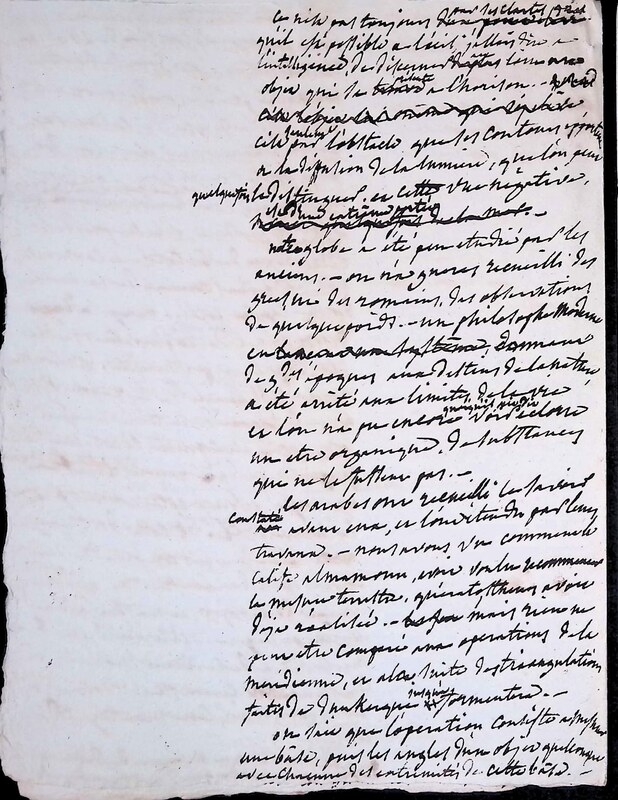 ce n'est pas toujours par ses clartés
qu'il est possible a l'œil, j'allois dire a
l'intelligence, de discerner
objet qui se a l'horison. -
c'est par l'obstacle que ses contours
a la diffusion de la lumière, que l'on peut
quelquefois le distinguer, en cette vue négative,
notre globe a été peu étudié par les
anciens. - on n'a gueres recueilli des
grecs ni des romains, des observations
de quelque poids. - un philosophe moderne
en
de époques aux destins de la nature
a été arrêté aux limites de la vie
et l'on n'a pu encore voir éclore
un etre organique, de substances
qui ne le fussent pas. -
les arabes ont recueilli le savoir
constaté avant eux, et l'ont étendu par leurs
travaux. - nous avons vu comment le
calife almamoun, avoit voulu recommencer
la mesure terrestre, qu'eratosthenes avoit
déja réalisée. - mais rien ne
peut etre comparé aux operations de la
méridienne, et a la suite des triangulations
faites de dunkerque jusques formentera. -
on sait que l'opération consiste a mesurer
une base, puis les angles d'un objet quelconque
avec chacune des extremités de cette base. -